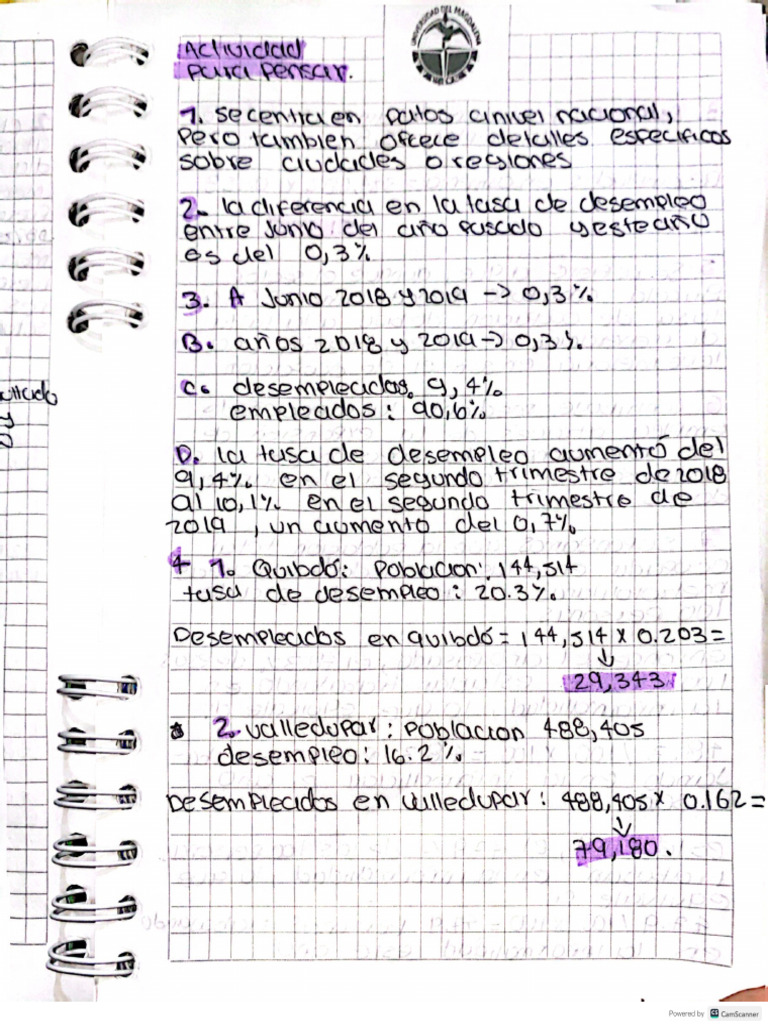 Actividad
para pensar.
UNIVERSIDAD DEL MAGDALENA
1. se centra en datos a nivel nacional,
Pero tambien ofrece detalles especificos
sobre ciudades o regiones
2. la diferencia en la tasa de desempleo
entre Junio del año pasado y este año
es del 0,3%
3. A Junio 2018 y 2019 -> 0,3%
B. años 2018 y 2019 -> 0,3%.
C. desempleados. 9,4%
empleados: 90,6%
D. la tasa de desempleo aumentó del
9,4% en el segundo trimestre de 2018
al 10,1% en el segundo trimestre de
2019, un aumento del 0,7%
4 1. Quibdó: Poblacion: 144,514
tasa de desempleo: 20.3%.
Desempleados en quibdó = 144,514 x 0.203 =
↓
29,343
2. valledupar: Poblacion 488,405
desempleo: 16.2%
Desempleados en valledupar: 488,405 x 0.162 =
↓
79,180.
Powered by CS CamScanner